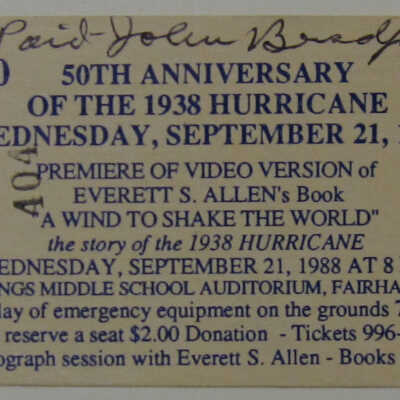 Paid - John Bradf
0
50TH ANNIVERSARY
OF THE 1938 HURRICANE
EDNESDAY, SEPTEMBER 21, 1
404
PREMIERE OF VIDEO VERSION of
EVERETT S. ALLEN's Book
A WIND TO SHAKE THE WORLD"
the story of the 1938 HURRICANE
EDNESDAY, SEPTEMBER 21, 1988 AT 8
NGS MIDDLE SCHOOL AUDITORIUM, FAIRHA
lay of emergency equipment on the grounds 7
reserve a seat $2.00 Donation - Tickets 996-
ograph session with Everett S. Allen - Books